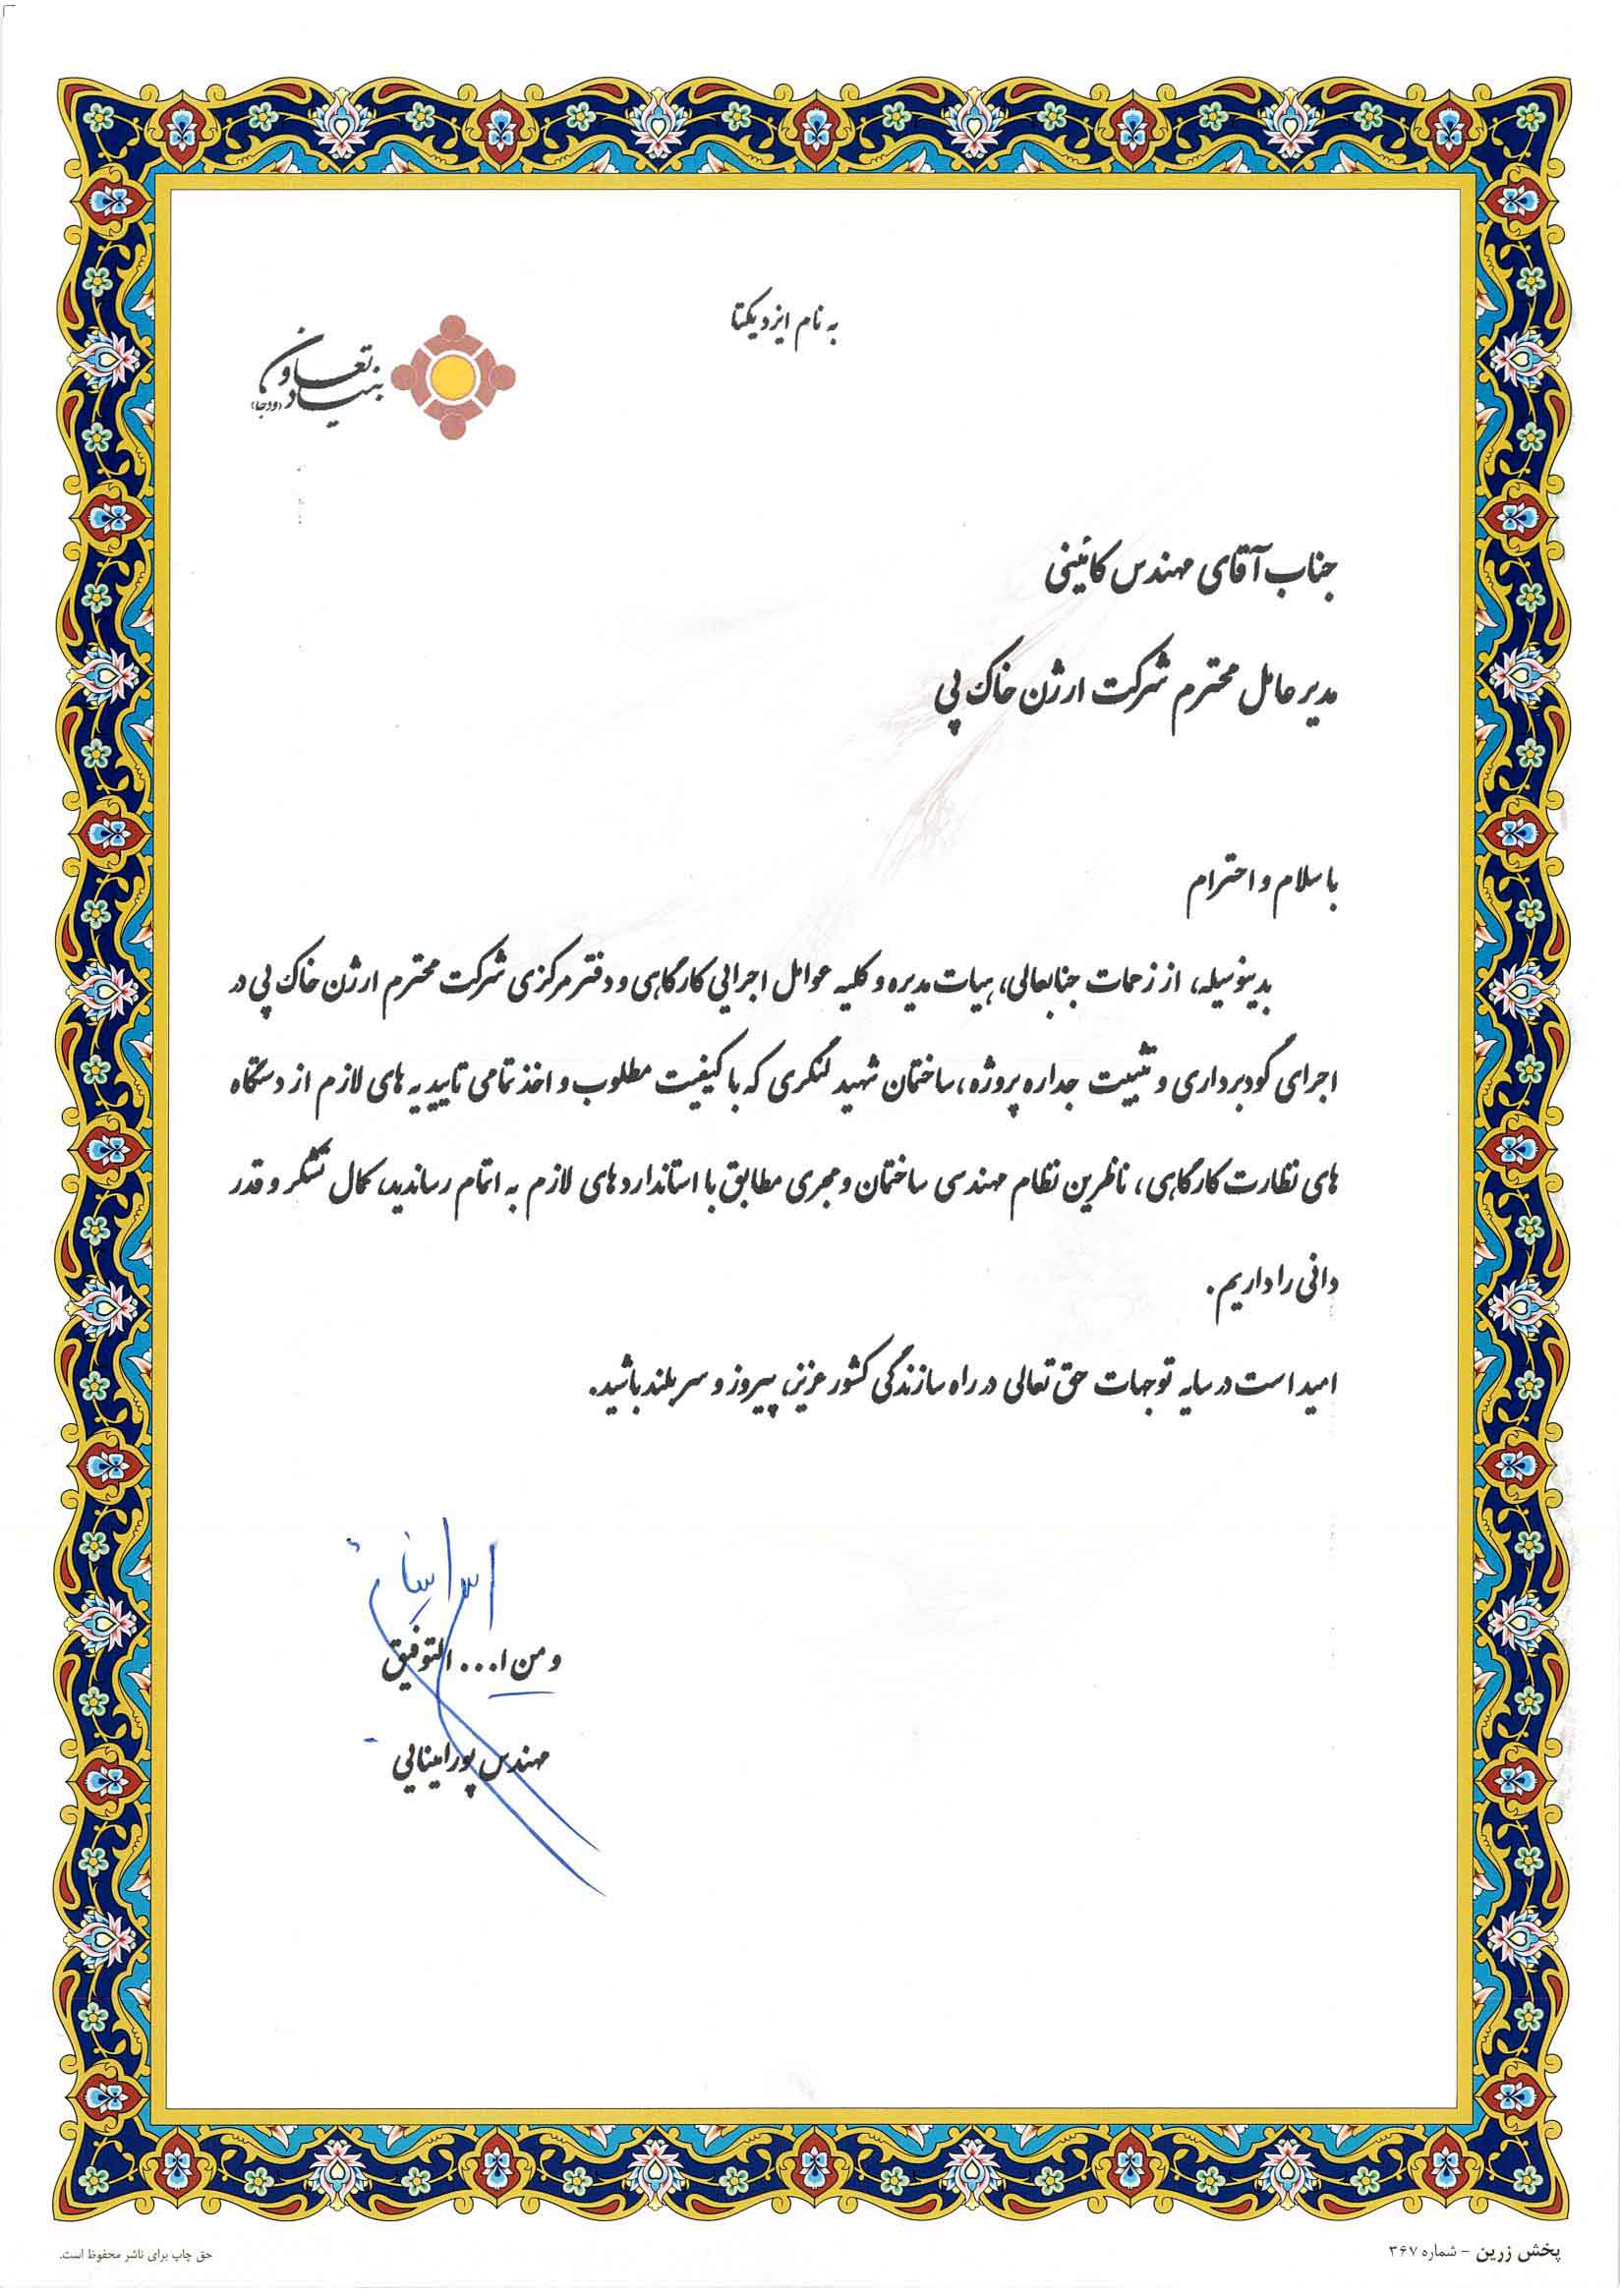 به نام ایزد یکتا
بنیاد تعاون
(ودجا)
جناب آقای مهندس کائینی
مدیر عامل محترم شرکت ارژن خاک پی
با سلام و احترام
بدینوسیله، از زحمات جنابعالی، هیات مدیره و کلیه عوامل اجرایی کارگاهی و دفتر مرکزی شرکت محترم ارژن خاک پی در
اجرای گودبرداری و تثبیت جداره پروژه، ساختمان شهید لنگری که با کیفیت مطلوب و اخذ تمامی تاییدیه های لازم از دستگاه
های نظارت کارگاهی، ناظرین نظام مهندسی ساختمان و مجری مطابق با استانداردهای لازم به اتمام رساندید، کمال تشکر و قدر
دانی را داریم.
امید است در سایه توجهات حق تعالی در راه سازندگی کشور عزیز، پیروز و سربلند باشید.
و من ا... التوفیق
مهندس پورامینایی
پخش زرین - شماره ۳۶۷
حق چاپ برای ناشر محفوظ است.